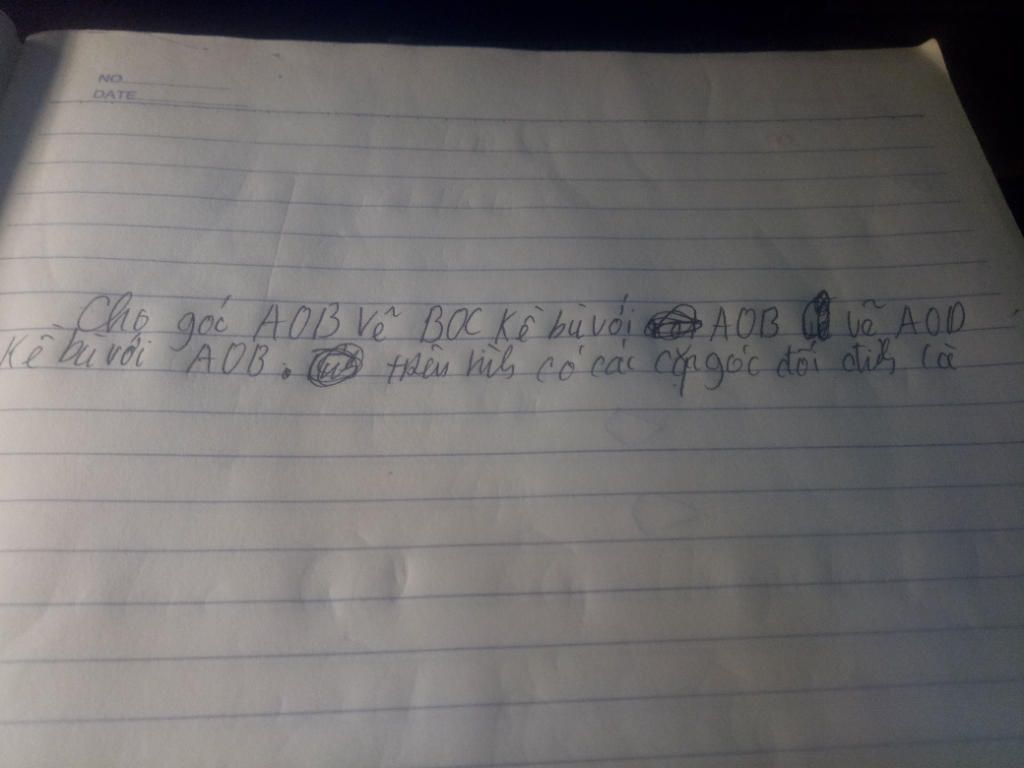 NO
DATE
Cho góc AOB vẽ BOC kề bù với AOB vẽ AOD
kề bù với AOB. trên hình có các cặp góc đối đỉnh là